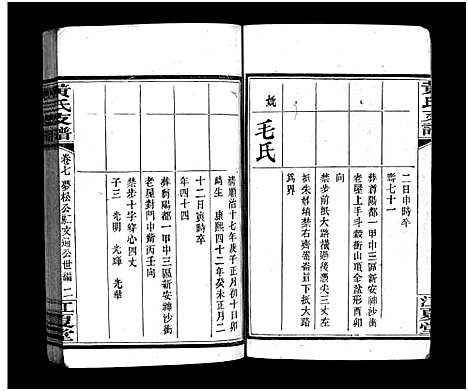 黃氏支譜
二日申時卒
壽七十一
葬酉陽都一甲中三區新安神沙衝
老屋上手斗穀衝山頂金盆形酉卯
向
禁步前抵大路橫牆後憑尖三丈左
抵朱姓墳禁右齊牆脊直下抵大路
爲界
妣 毛氏
江夏堂
清順治十七年庚子正月初十日卯
時生 康熙四十二年癸未正月二
十二日寅時卒
年四十四
葬酉陽都一甲中三區新安神沙衝
老屋對門中 丙壬向
禁步十字穿心四丈
子三 光明 光輝 光華
黃氏支譜
卷七 夢松公 文 公世編 二
江夏堂